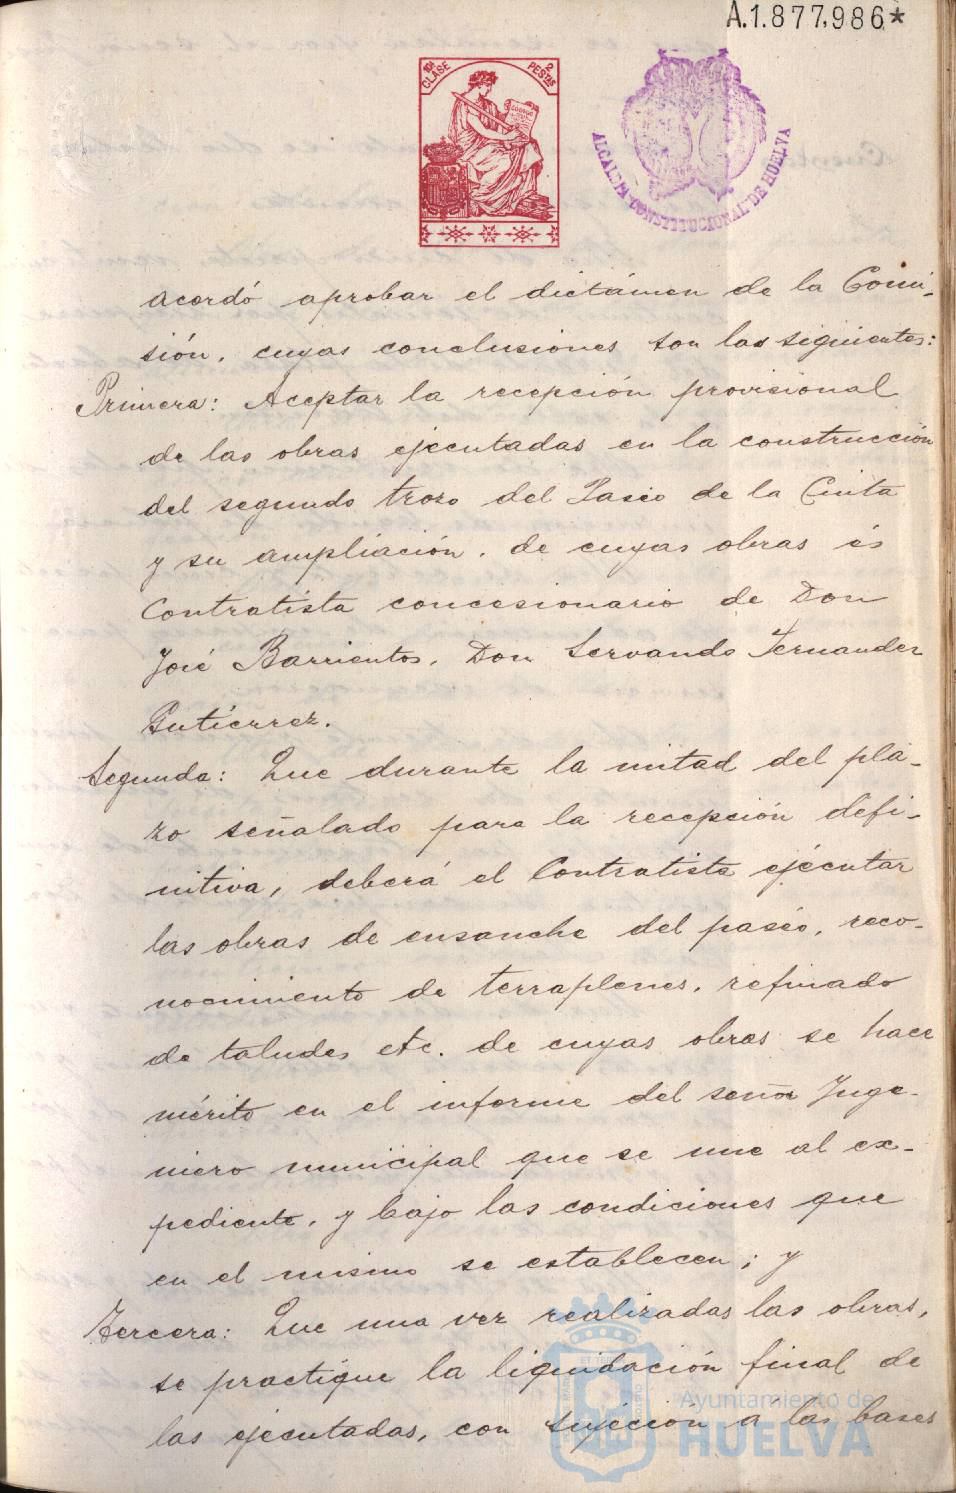 A.1.877,986*
10ª CLASE 2 PESTAS
ALCALDIA CONSTITUCIONAL DE HUELVA
acordó aprobar el dictámen de la Comi-
sión, cuyas conclusiones son las siguientes:
Primera: Aceptar la recepción provisional
de las obras ejecutadas en la construcción
del segundo trozo del Paseo de la Cinta
y su ampliación, de cuyas obras és
Contratista concesionario de Don
José Barrientos, Don Servando Fernandez
Gutiérrez.
Segunda: Que durante la mitad del pla-
zo señalado para la recepción defi-
nitiva, deberá el Contratista ejecutar
las obras de ensanche del paseo, reco-
nocimiento de terraplenes, refinado
de taludes etc. de cuyas obras se hace
mérito en el informe del señor Inge-
niero municipal que se une al ex-
pediente, y bajo las condiciones que
en el mismo se establecen; y
Tercera: Que una vez realizadas las obras,
se practique la liquidación final de
las ejecutadas, con sujeción a las bases
Ayuntamiento de
HUELVA